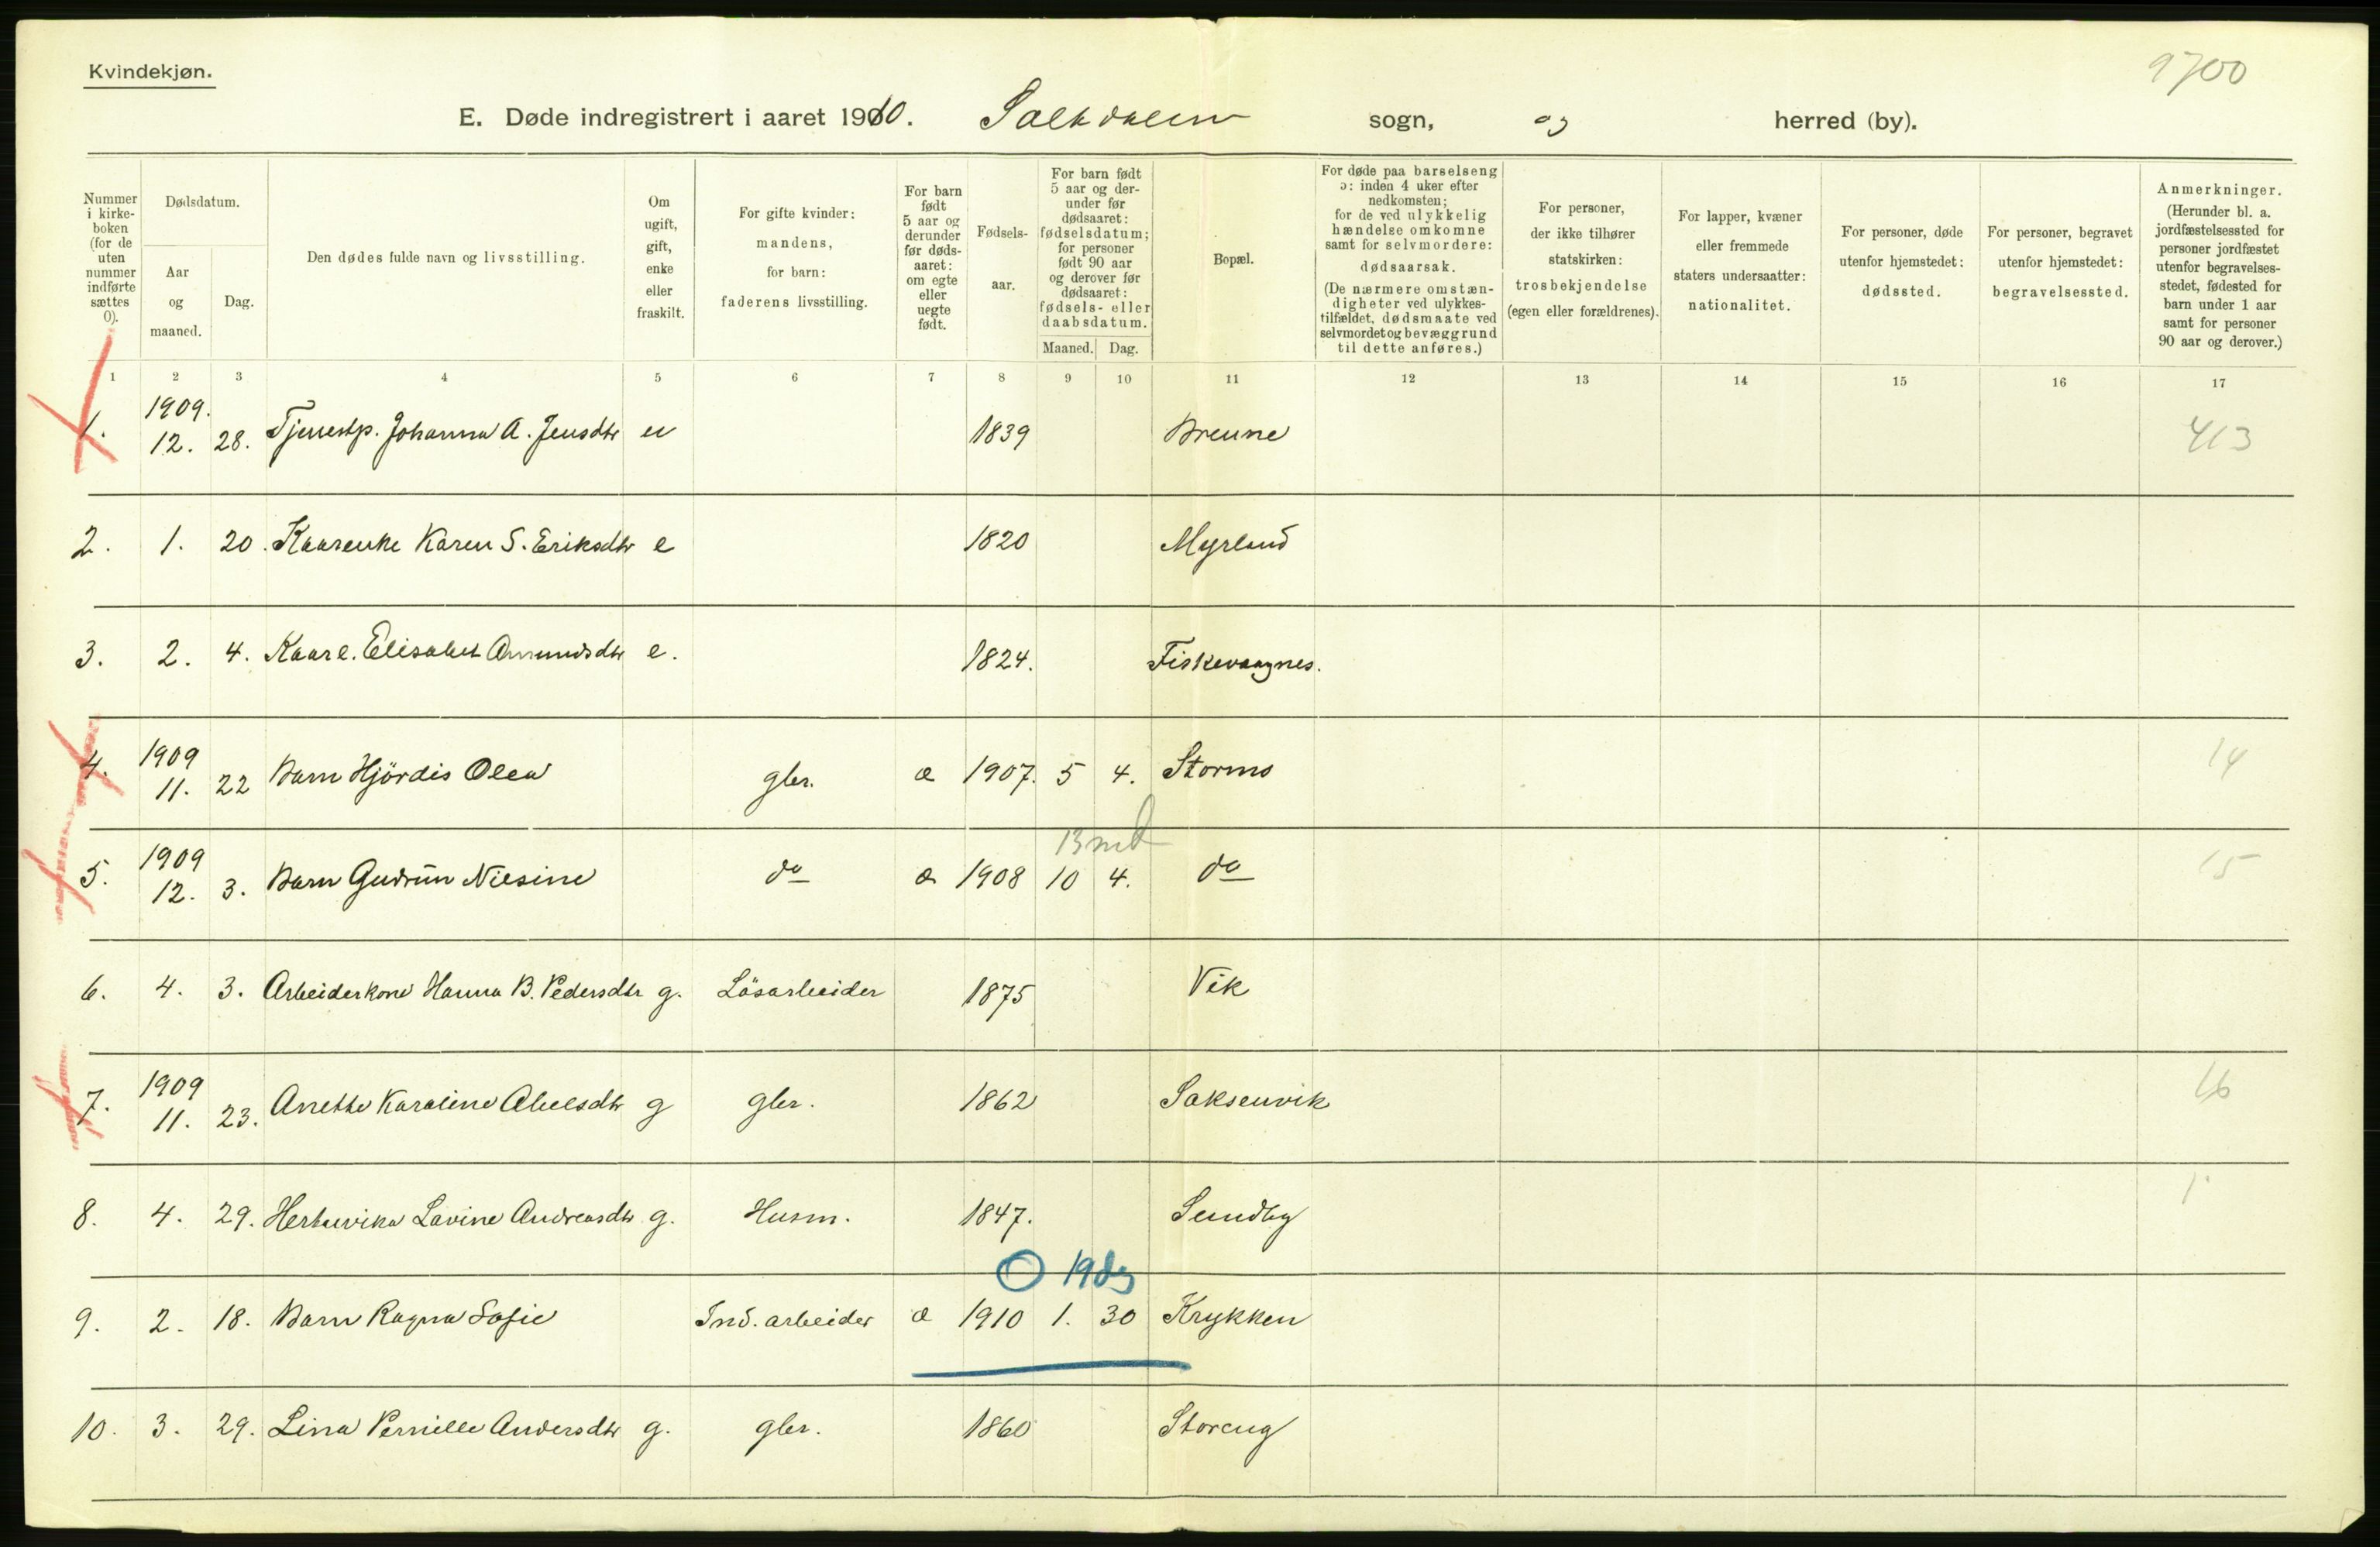 Kvindekjøn.
9700
E. Døde indregistrert i aaret 1910. Saltdalen sogn, og herred (by).
Nummer i kirkeboken (for de uten nummer indførte sættes 0).
Dødsdatum.
Aar og maaned.
Dag.
Den dødes fulde navn og livsstilling.
Om ugift, gift, enke eller fraskilt.
For gifte kvinder: mandens, for barn: faderens livsstilling.
For barn født 5 aar og derunder før dødsaaret: om egte eller uegte født.
Fødselsaar.
For barn født 5 aar og derunder før dødsaaret: fødselsdatum; for personer født 90 aar og derover før dødsaaret: fødsels- eller daabsdatum.
Maaned. Dag.
Bopæl.
For døde paa barselseng ɔ: inden 4 uker efter nedkomsten; for de ved ulykkelig hændelse omkomne samt for selvmordere: dødsaarsak. (De nærmere omstændigheter ved ulykkestilfældet, dødsmaate ved selvmordet og bevæggrund til dette anføres.)
For personer, der ikke tilhører statskirken: trosbekjendelse (egen eller forældrenes).
For lapper, kvæner eller fremmede staters undersaatter: nationalitet.
For personer, døde utenfor hjemstedet: dødssted.
For personer, begravet utenfor hjemstedet: begravelsessted.
Anmerkninger. (Herunder bl. a. jordfæstelsessted for personer jordfæstet utenfor begravelsesstedet, fødested for barn under 1 aar samt for personer 90 aar og derover.)
1 2 3 4 5 6 7 8 9 10 11 12 13 14 15 16 17
1. 1909. 12. 28. Tjenestp. Johanna A. Jensdtr u 1839 Breune 413
2. 1. 20. Kaarenke Karen S. Eriksdtr e 1820 Myrland
3. 2. 4. Kaare. Elisabet Amundsdtr e. 1824. Fiskevaagnes.
4. 1909 11. 22 Barn Hjördis Olea gbr. æ 1907. 5 4. Stormo 14
13 md
5. 1909 12. 3. Barn Gudrun Nilsine do æ 1908 10 4. do 15
6. 4. 3. Arbeiderkone Hanna B. Pedersdtr g. Lösarbeider 1875 Vik
7. 1909 11. 23. Anette Karoline Abelsdtr g gbr. 1862 Saksenvik 16
8. 4. 29. Lavine Andreasdtr g. Husm. 1847. Sundby 1
O 19 dg
9. 2. 18. Barn Ragna Sofie Ind. arbeider æ 1910 1. 30 Krykken
10. 3. 29. Lina Pernille Andersdtr g. gbr. 1860 Storeng